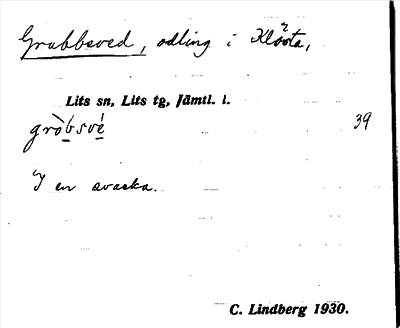 Grubbsved, odling i Klösta,
Lits sn, Lits tg, Jämtl. l.
gròbsvé 39
I en svacka.
C. Lindberg 1930.